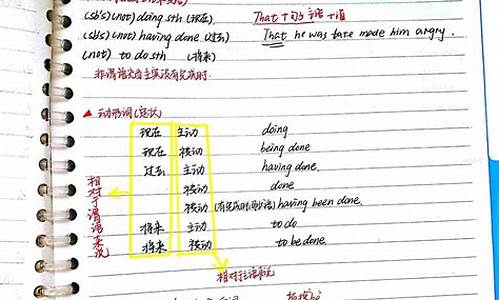 (sb's)(not) doing sth (现在)
That + 句子 主语 + 谓
(sb's)(not) having done (过去)
That he was late made him angry.
(not) to do sth (将来)
非谓语充当主宾没有完成时.
▲ 动形词(定状)
现在 主动 doing
现在 被动 being done
过去 主动 having done.
被动 done
被动 having been done.
将来 主动 to do
将来 被动 to be done.
相对于谓语来说
相对主语来说